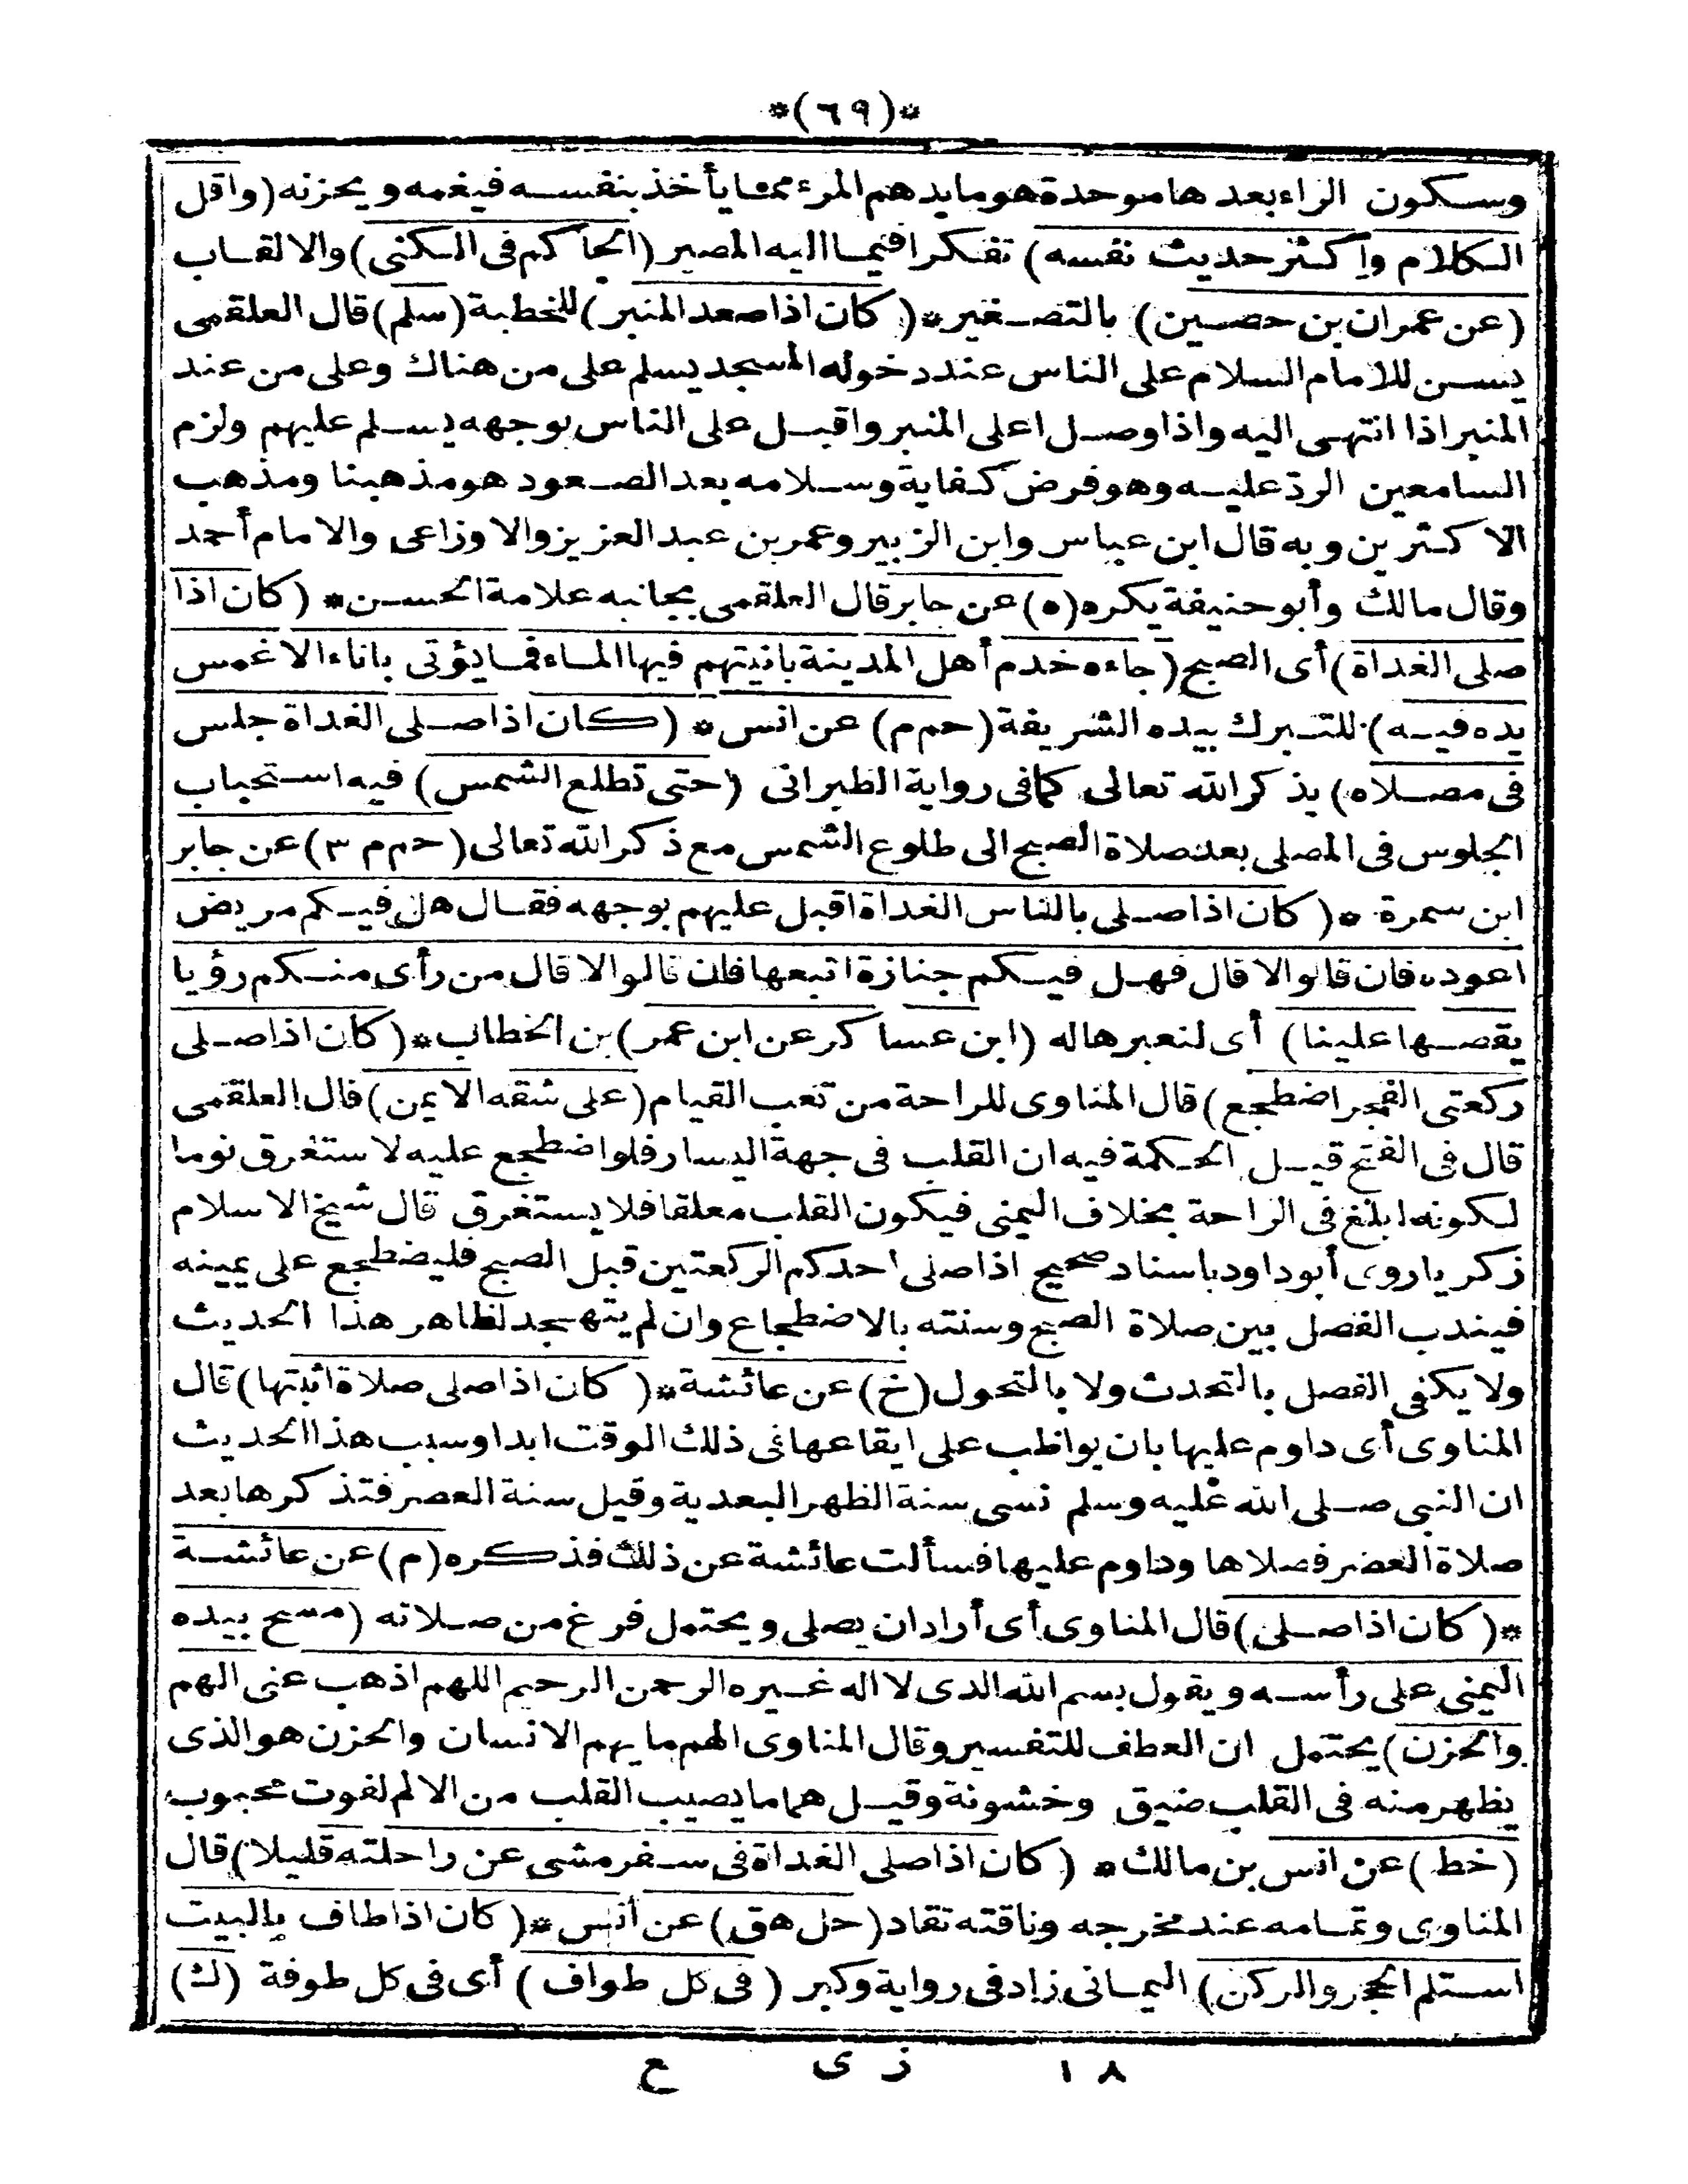 *(٦٩)*
وسكون الراء بعدها موحدة هو ما يدهم المرء مما يأخذ بنفسه فيغمه ويحزنه (واقل
الكلام واكثر حديث نفسه) تفكرا فيما اليه المصير (الحاكم فى الكنى) والالقاب
(عن عمران بن حصين) بالتصغير * (كان اذا صعد المنبر) للخطبة (سلم) قال العلقمى
يسن للامام السلام على الناس عند دخوله المسجد يسلم على من هناك وعلى من عند
المنبر اذا انتهى اليه واذا وصل اعلى المنبر واقبل على الناس بوجهه يسلم عليهم ولزم
السامعين الردّ عليه وهو فرض كفاية وسلامه بعد الصعود هو مذهبنا ومذهب
الاكثرين وبه قال ابن عباس وابن الزبير وعمر بن عبد العزيز والاوزاعى والامام أحمد
وقال مالك وأبو حنيفة يكره (ه) عن جابر قال العلقمى بجانبه علامة الحسن * (كان اذا
صلى الغداة) أى الصبح (جاءه خدم أهل المدينة بانيتهم فيها الماء فما يؤتى باناء الا غمس
يده فيه) للتبرك بيده الشريفة (حم م) عن انس * (كان اذا صلى الغداة جلس
فى مصلاه) يذكر الله تعالى كما فى رواية الطبرانى (حتى تطلع الشمس) فيه استحباب
الجلوس فى المصلى بعد صلاة الصبح الى طلوع الشمس مع ذكر الله تعالى (حم م ٣) عن جابر
ابن سمرة * (كان اذا صلى بالناس الغداة اقبل عليهم بوجهه فقال هل فيكم مريض
اعوده فان قالوا لا قال فهل فيكم جنازة اتبعها فان قالوا لا قال من رأى منكم رؤيا
يقصها علينا) أى لنعبرها له (ابن عساكر عن ابن عمر) بن الخطاب * (كان اذا صلى
ركعتى الفجر اضطجع) قال المناوى للراحة من تعب القيام (على شقه الايمن) قال العلقمى
قال فى الفتح قيل الحكمة فيه ان القلب فى جهة اليسار فلو اضطجع عليه لاستغرق نوما
لكونه ابلغ فى الراحة بخلاف اليمنى فيكون القلب معلقا فلا يستغرق قال شيخ الاسلام
زكريا روى أبو داود باسناد صحيح اذا صلى احدكم الركعتين قبل الصبح فليضطجع على يمينه
فيندب الفصل بين صلاة الصبح وسنته بالاضطجاع وان لم يتهجد لظاهر هذا الحديث
ولا يكفى الفصل بالتحدث ولا بالتحول (خ) عن عائشة * (كان اذا صلى صلاة اثبتها) قال
المناوى أى داوم عليها بان يواظب على ايقاعها فى ذلك الوقت ابدا وسبب هذا الحديث
ان النبى صلى الله عليه وسلم نسى سنة الظهر البعدية وقيل سنة العصر فتذكرها بعد
صلاة العصر فصلاها وداوم عليها فسألت عائشة عن ذلك فذكره (م) عن عائشة
* (كان اذا صلى) قال المناوى أى أراد ان يصلى ويحتمل فرغ من صلاته (مسح بيده
اليمنى على رأسه ويقول بسم الله الذى لا اله غيره الرحمن الرحيم اللهم اذهب عنى الهم
والحزن) يحتمل ان العطف للتفسير وقال المناوى الهم ما يهم الانسان والحزن هو الذى
يظهر منه فى القلب ضيق وخشونة وقيل هما ما يصيب القلب من الالم لفوت محبوب
(خط) عن انس بن مالك * (كان اذا صلى الغداة فى سفر مشى عن راحلته قليلا) قال
المناوى وتمامه عند مخرجه وناقته تقاد (حل هق) عن أنس * (كان اذا طاف بالبيت
استلم الحجر والركن) اليمانى زاد فى رواية وكبر (فى كل طواف) أى فى كل طوفة (ك)
١٨ زى ع